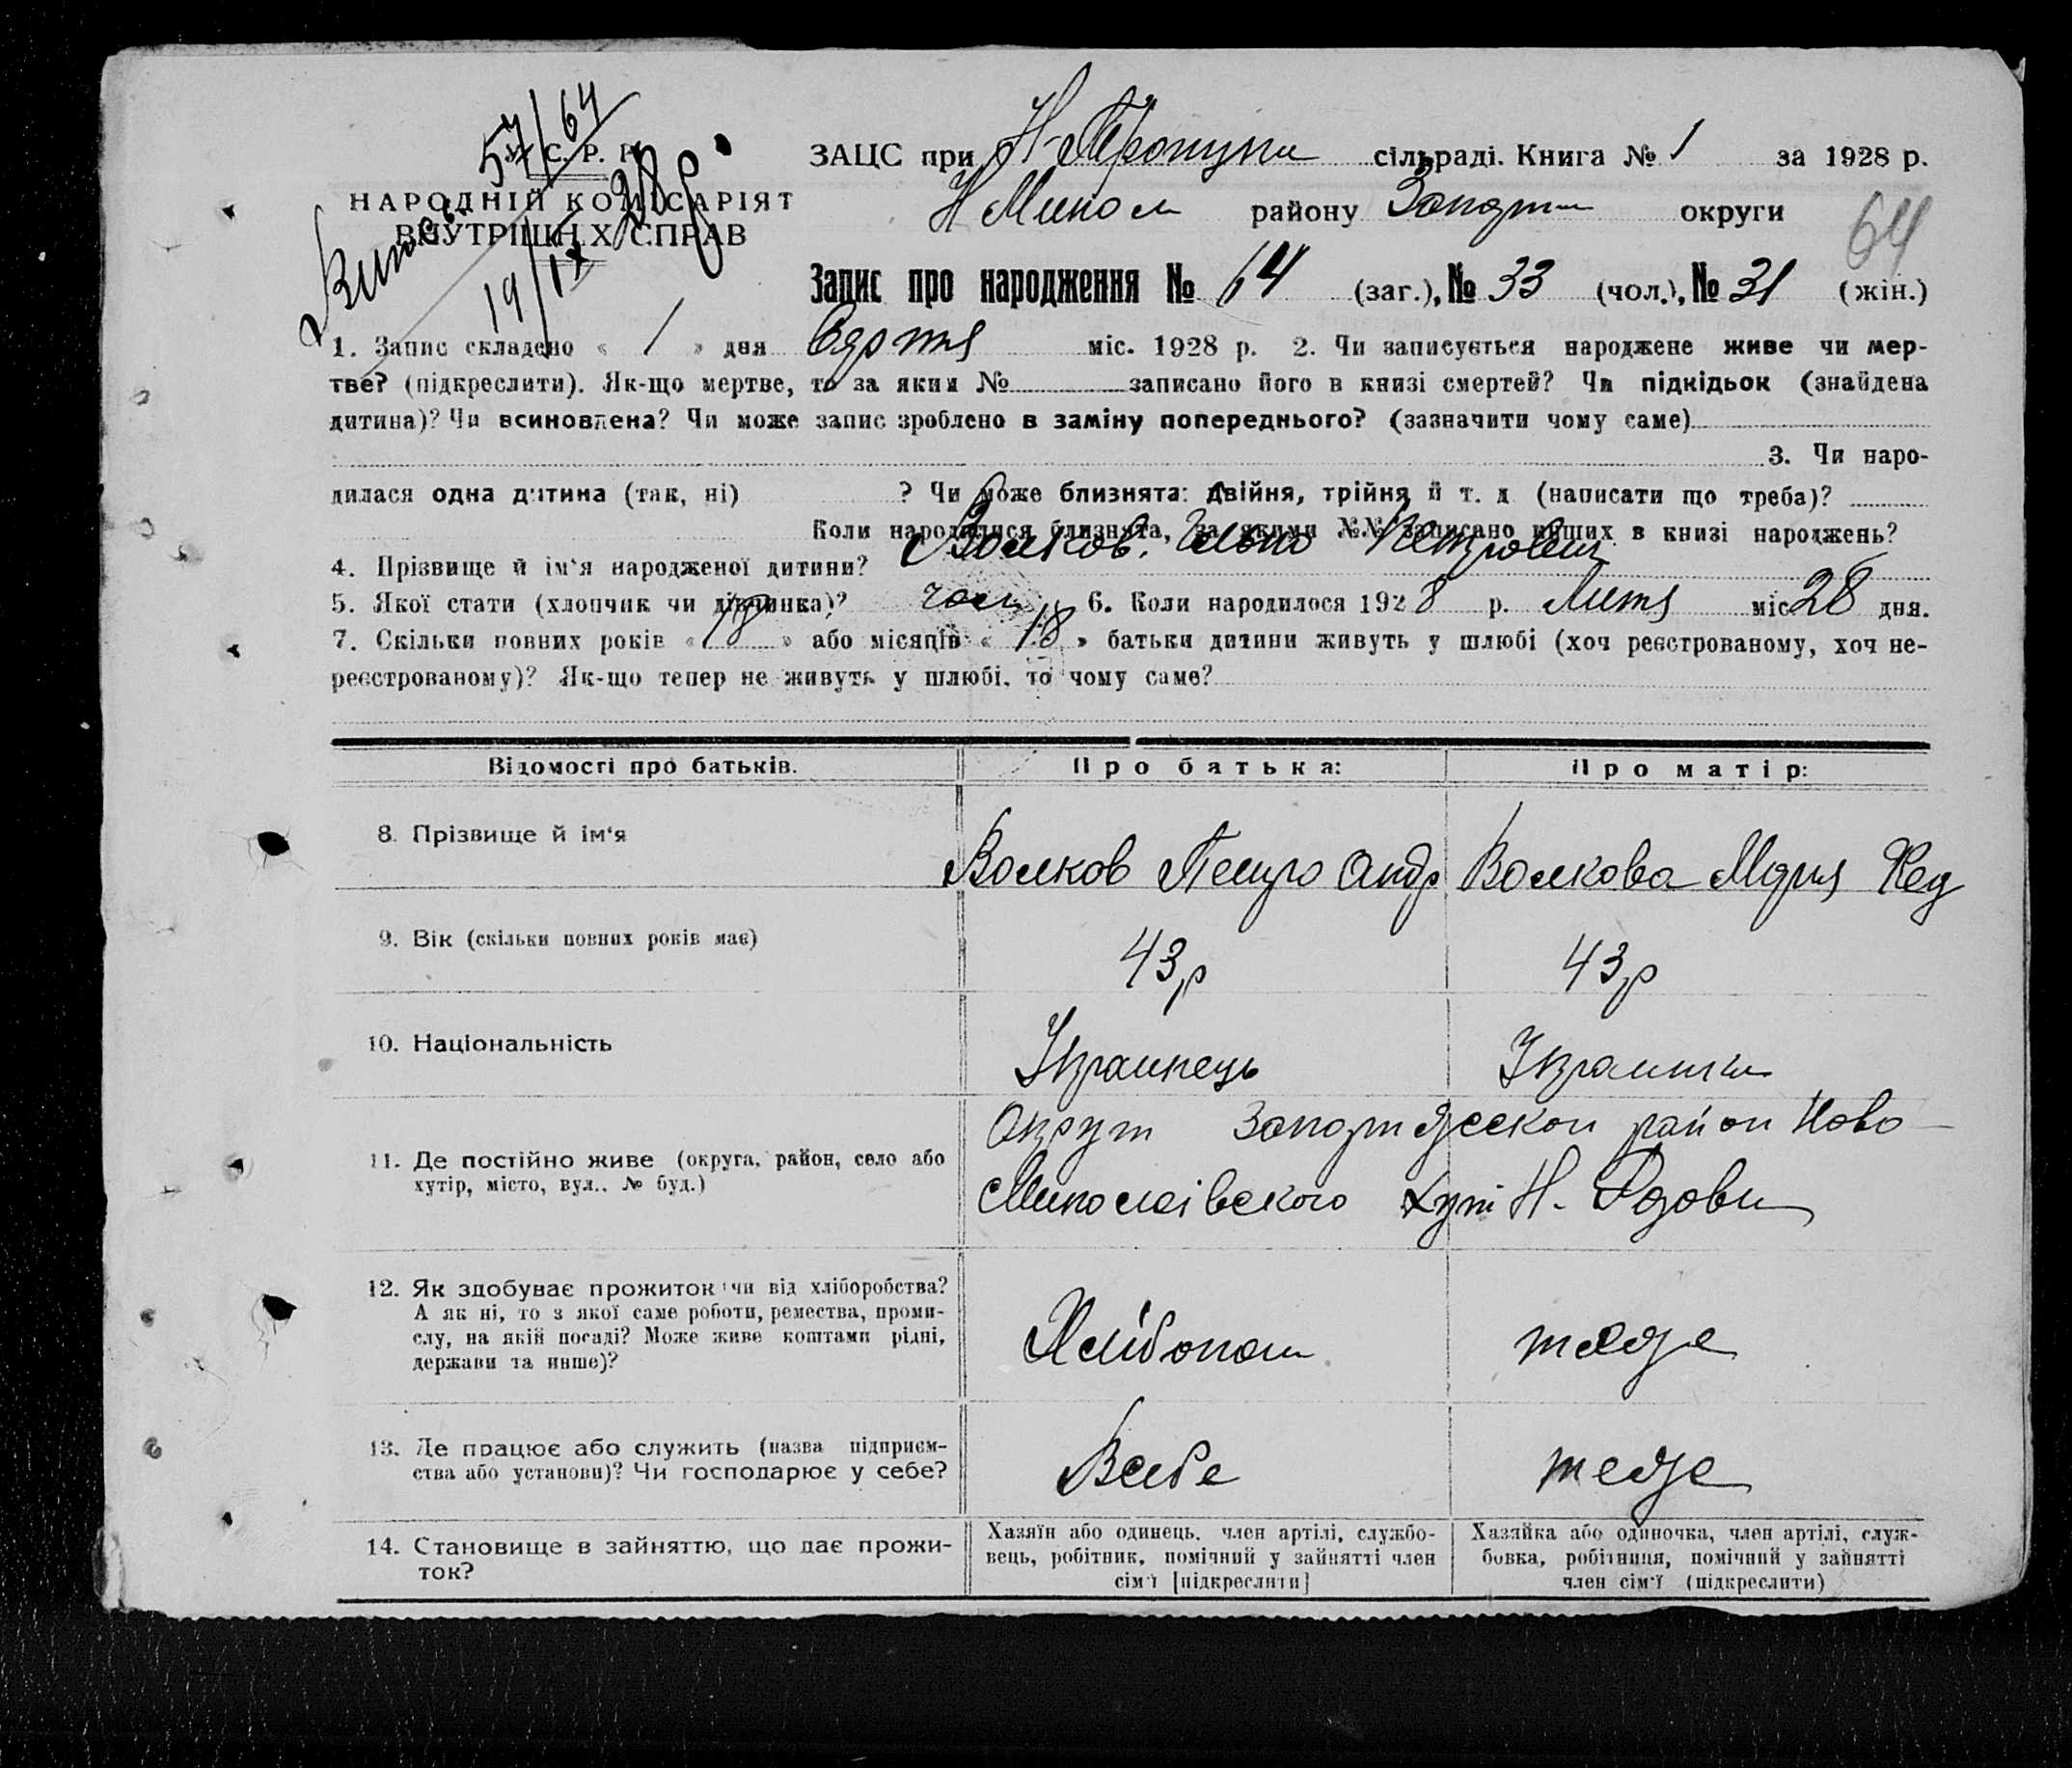 57/64
У. С. Р. Р.
НАРОДНІЙ КОМІСАРІЯТ
ВНУТРІШНІХ СПРАВ
19/IX 28р.
ЗАЦС при сільраді. Книга № 1 за 1928 р.
Н Микол району Запоріж округи
64
Запис про народження № 64 (заг.), № 33 (чол.), № 31 (жін.)
1. Запис складено « 1 » дня міс. 1928 р. 2. Чи записується народжене живе чи мер-
тве? (підкреслити). Як-що мертве, то за яким № записано його в книзі смертей? Чи підкідьок (знайдена
дитина)? Чи всиновлена? Чи може запис зроблено в заміну попереднього? (зазначити чому саме)
3. Чи наро-
дилася одна дитина (так, ні) ? Чи може близнята: двійня, трійня й т. д (написати що треба)?
Коли народилися близнята, за якими №№ записано инших в книзі народжень?
4. Прізвище й ім'я народженої дитини? Волков Ілько Петрович
5. Якої стати (хлопчик чи дівчинка)? чол 6. Коли народилося 1928 р. міс 28 дня.
7. Скільки повних років « 18 » або місяців « 18 » батьки дитини живуть у шлюбі (хоч реєстрованому, хоч не-
реєстрованому)? Як-що тепер не живуть у шлюбі, то чому саме?
Відомості про батьків. Про батька: Про матір:
8. Прізвище й ім'я Волков Петро Андр Волкова Марія Фед
9. Вік (скільки повних років має) 43р 43р
10. Національність Українець Українка
11. Де постійно живе (округа, район, село або
хутір, місто, вул., № буд.)
Округ район Ново-
Миколаівского хут Н.
12. Як здобуває прожиток: чи від хліборобства?
А як ні, то з якої саме роботи, ремества, проми-
слу, на якій посаді? Може живе коштами рідні,
держави та инше)?
Хлібопаш теже
13. Де працює або служить (назва підприєм-
ства або установи)? Чи господарює у себе?
Всебе теже
14. Становище в зайняттю, що дає прожи-
ток?
Хазяїн або одинець, член артілі, службо-
вець, робітник, помічний у зайнятті член
сім'ї [підкреслити]
Хазяйка або одиночка, член артілі, служ-
бовка, робітниця, помічний у зайнятті
член сім'ї (підкреслити)